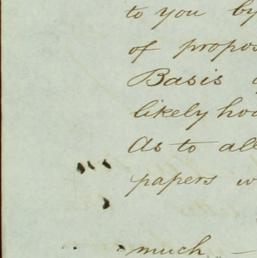 to you by
of propos
Basis
likely hoo
As to all
papers w
much —